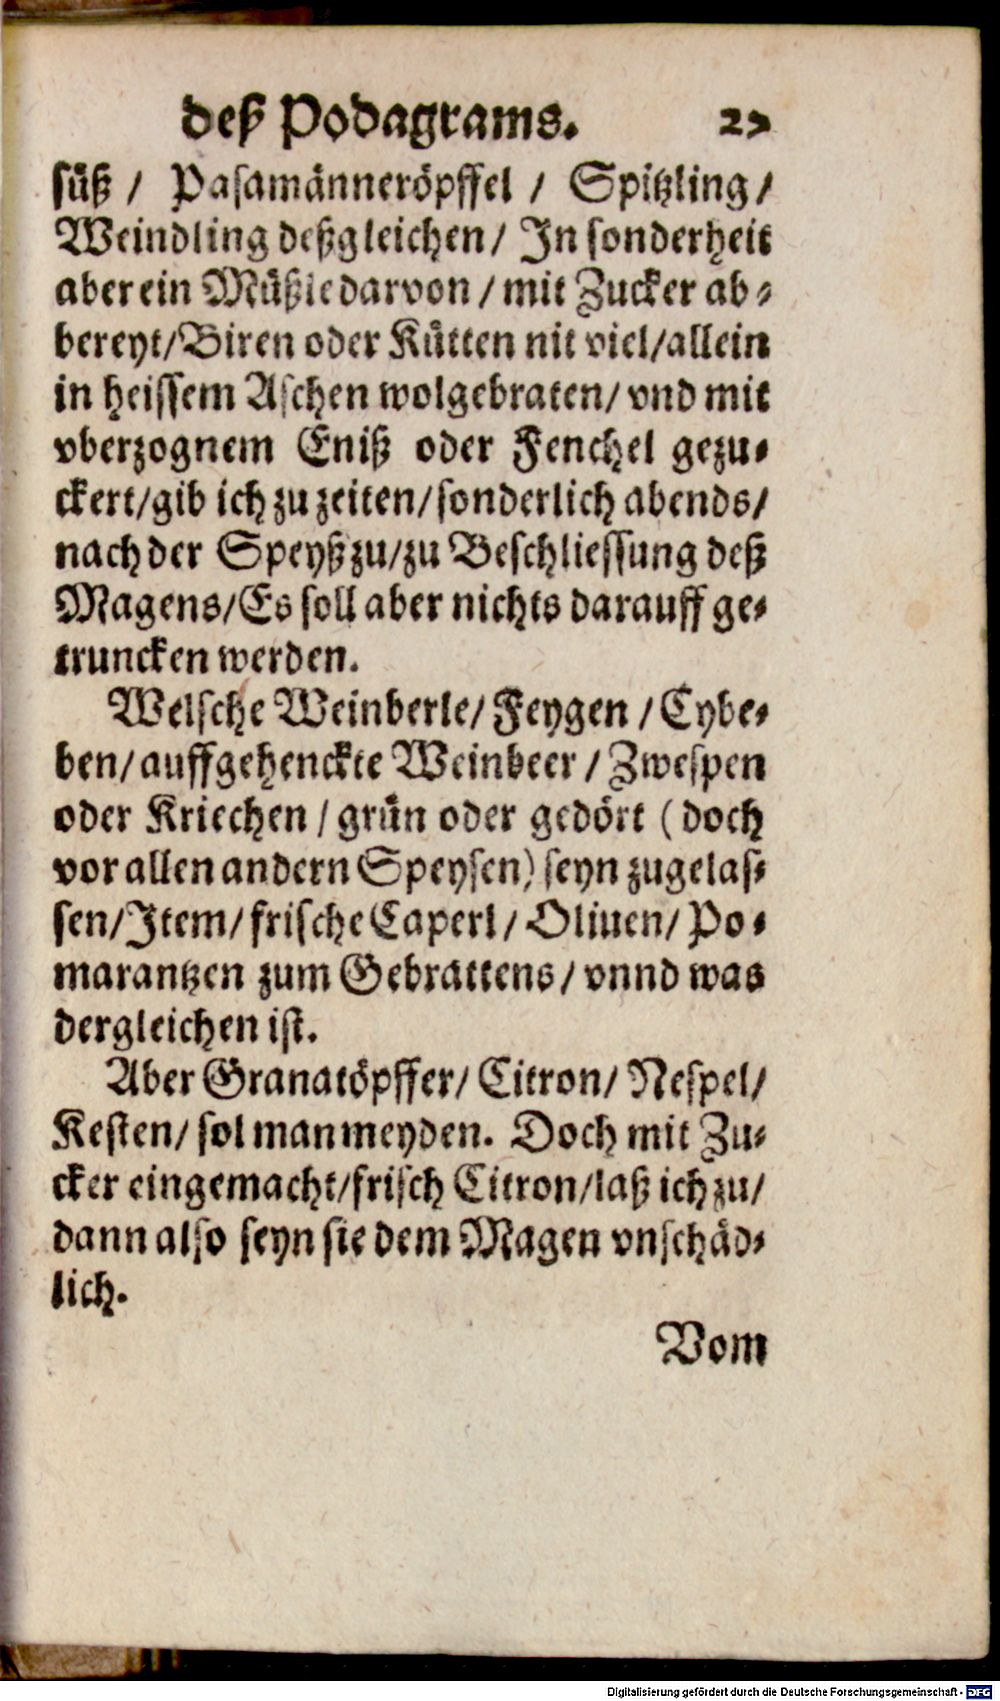 deß Podagrams. 25
süß / Pasamänneröpffel / Spitzling /
Weindling deßgleichen / In sonderheit
aber ein Müßle darvon / mit Zucker ab-
bereyt / Biren oder Kütten nit viel / allein
in heissem Aschen wolgebraten / vnd mit
vberzognem Eniß oder Fenchel gezu-
ckert / gib ich zu zeiten / sonderlich abends /
nach der Speyß zu / zu Beschliessung deß
Magens / Es soll aber nichts darauff ge-
truncken werden.
Welsche Weinberle / Feygen / Cybe-
ben / auffgehenckte Weinbeer / Zwespen
oder Kriechen / grün oder gedört (doch
vor allen andern Speysen) seyn zugelas-
sen / Item / frische Caperl / Oliuen / Po-
marantzen zum Gebrattens / vnnd was
dergleichen ist.
Aber Granatöpffer / Citron / Nespel /
Kesten / sol man meyden. Doch mit Zu-
cker eingemacht / frisch Citron / laß ich zu /
dann also seyn sie dem Magen vnschäd-
lich.
Vom
Digitalisierung gefördert durch die Deutsche Forschungsgemeinschaft - DFG